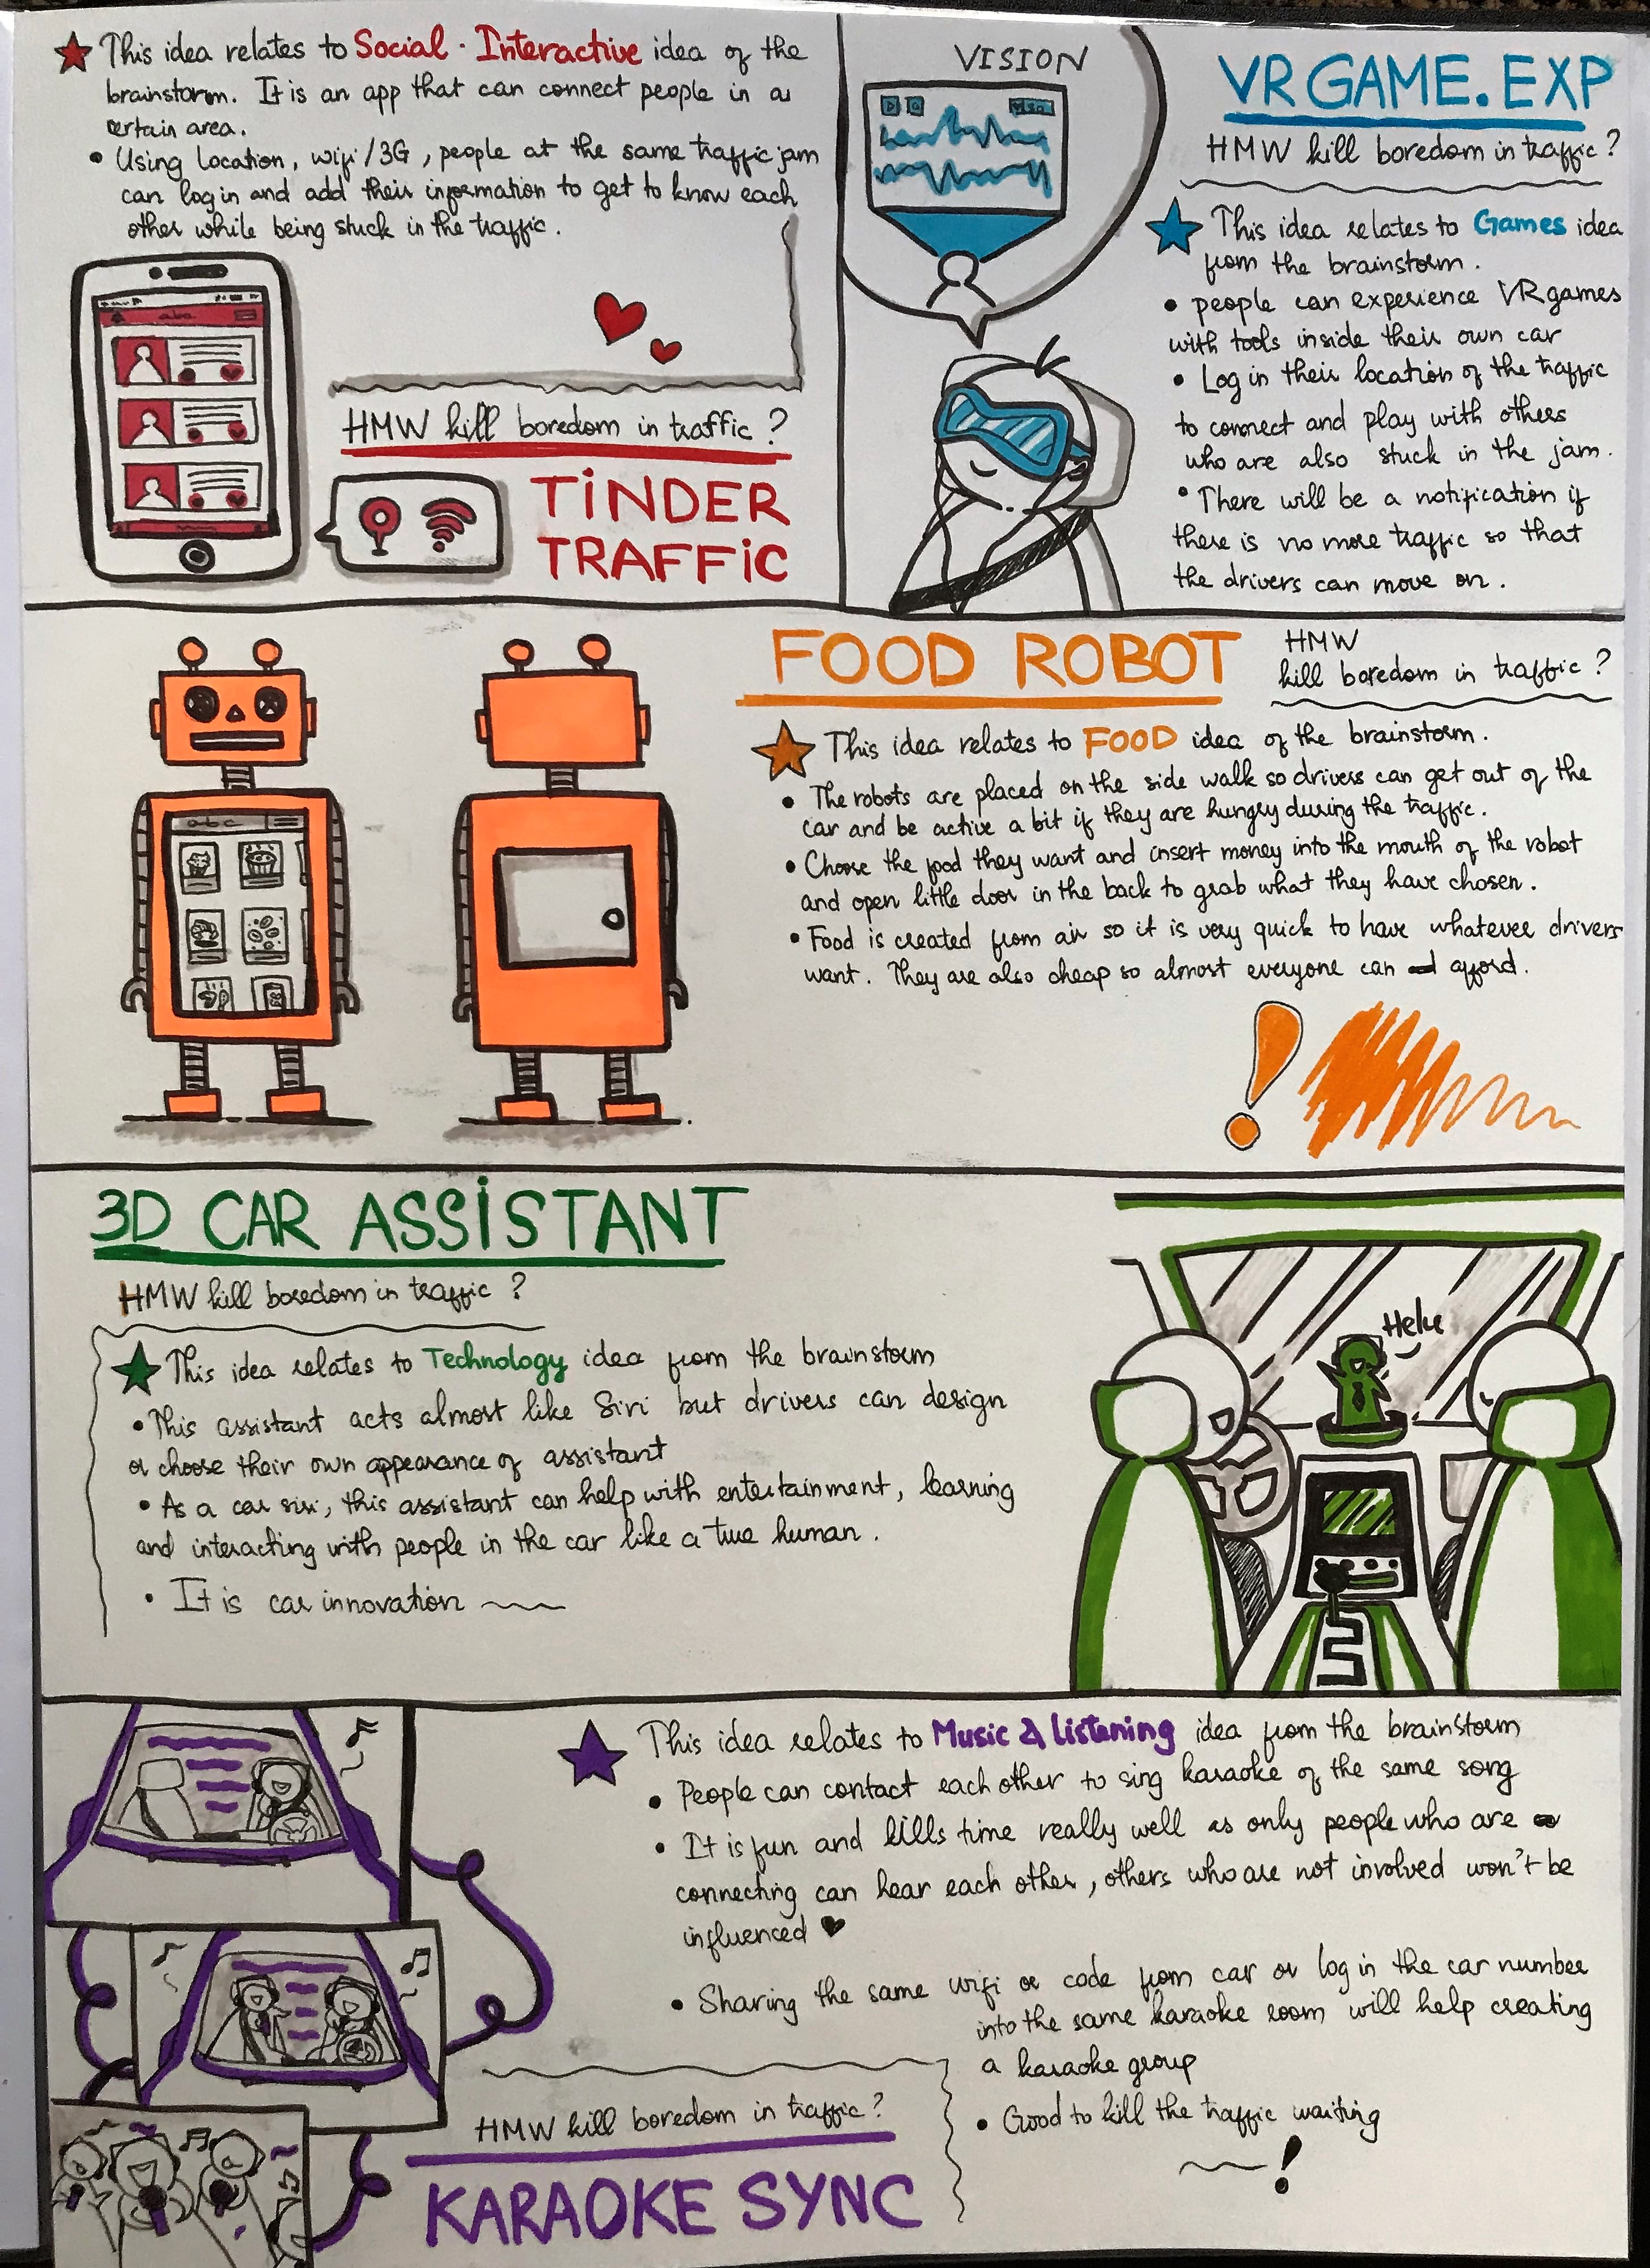 This idea relates to Social · Interactive idea of the
brainstorm. It is an app that can connect people in a
certain area.
• Using location, wifi/3G, people at the same traffic jam
can log in and add their information to get to know each
other while being stuck in the traffic.
abc
HMW kill boredom in traffic?
TINDER
TRAFFIC
VISION
VR GAME.EXP
HMW kill boredom in traffic?
This idea relates to Games idea
from the brainstorm.
• people can experience VR games
with tools inside their own car
• Log in their location of the traffic
to connect and play with others
who are also stuck in the jam.
• There will be a notification if
there is no more traffic so that
the drivers can move on.
FOOD ROBOT
HMW
kill boredom in traffic?
This idea relates to FOOD idea of the brainstorm.
• The robots are placed on the side walk so drivers can get out of the
car and be active a bit if they are hungry during the traffic.
• Choose the food they want and insert money into the mouth of the robot
and open little door in the back to grab what they have chosen.
• Food is created from air so it is very quick to have whatever drivers
want. They are also cheap so almost everyone can afford.
abc
!
3D CAR ASSISTANT
HMW kill boredom in traffic?
This idea relates to Technology idea from the brainstorm
• This assistant acts almost like Siri but drivers can design
or choose their own appearance of assistant
• As a car siri, this assistant can help with entertainment, learning
and interacting with people in the car like a true human.
• It is car innovation
This idea relates to Music & listening idea from the brainstorm
• People can contact each other to sing karaoke of the same song
• It is fun and kills time really well as only people who are
connecting can hear each other, others who are not involved won't be
influenced ♥
• Sharing the same wifi or code from car or log in the car number
into the same karaoke room will help creating
a karaoke group
• Good to kill the traffic waiting
!
HMW kill boredom in traffic?
KARAOKE SYNC